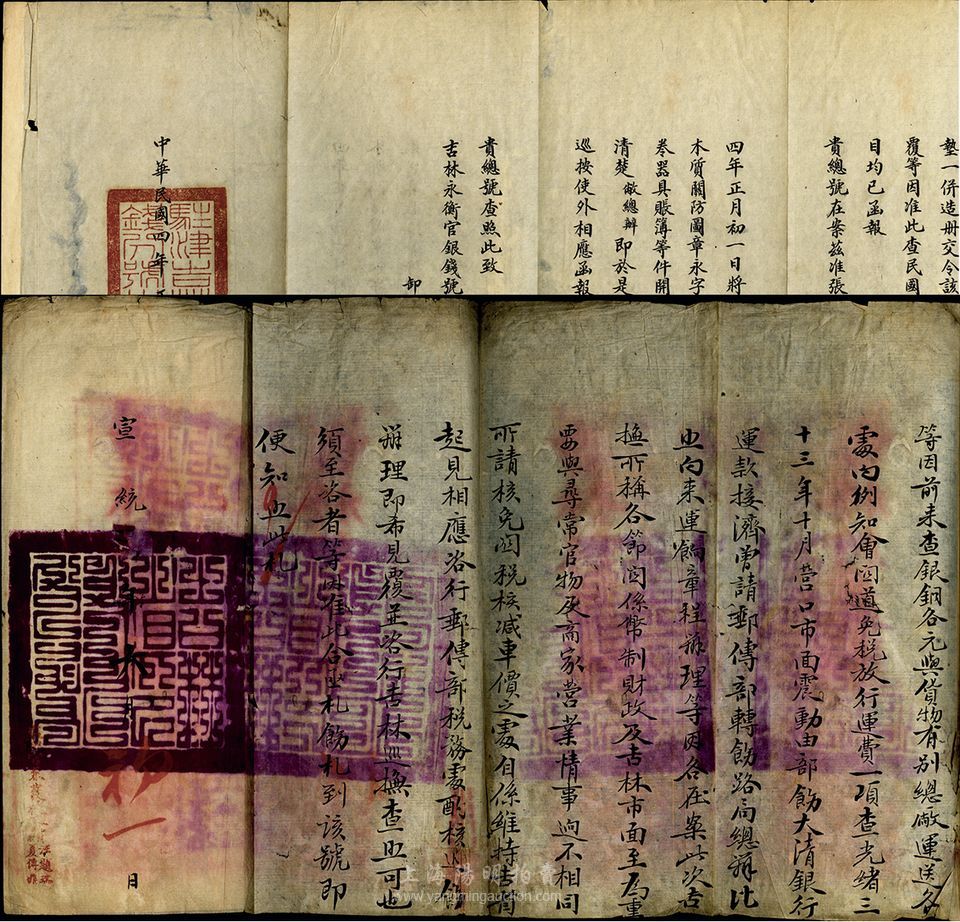 墊一併造册交令該
覆等因准此查民國
目均已函報
貴總號在案茲准張
四年正月初一日將
木質關防圖章永字
卷器具賬簿等件開
清楚敝總辦即於是
巡按使外相應函報
貴總號查照此致
吉林永衡官銀錢號
卸
中華民國四年
等因前来查銀銅各元與貨物有別總廠運送各
處向例知會關道免税放行運費一項查光緒三
十三年十月營口市面震動由部飭大清銀行
運款接濟曾請郵傳部轉飭路局總辦比
照向来運餉章程辦理等因各在案此次吉
撫所稱各節關係幣制財政及吉林市面至爲重
要與尋常官物及商家營業情事逈不相同
所請核免關税核减車價之處自係維持
起見相應咨行郵傳部税務處酌核
辦理即希見覆並咨行吉林巡撫查照可也
須至咨者等因准此合亟札飭札到該號即
便知照此札
宣統
年
月
初一
日
上海陽明拍賣
www.yangmingauction.com